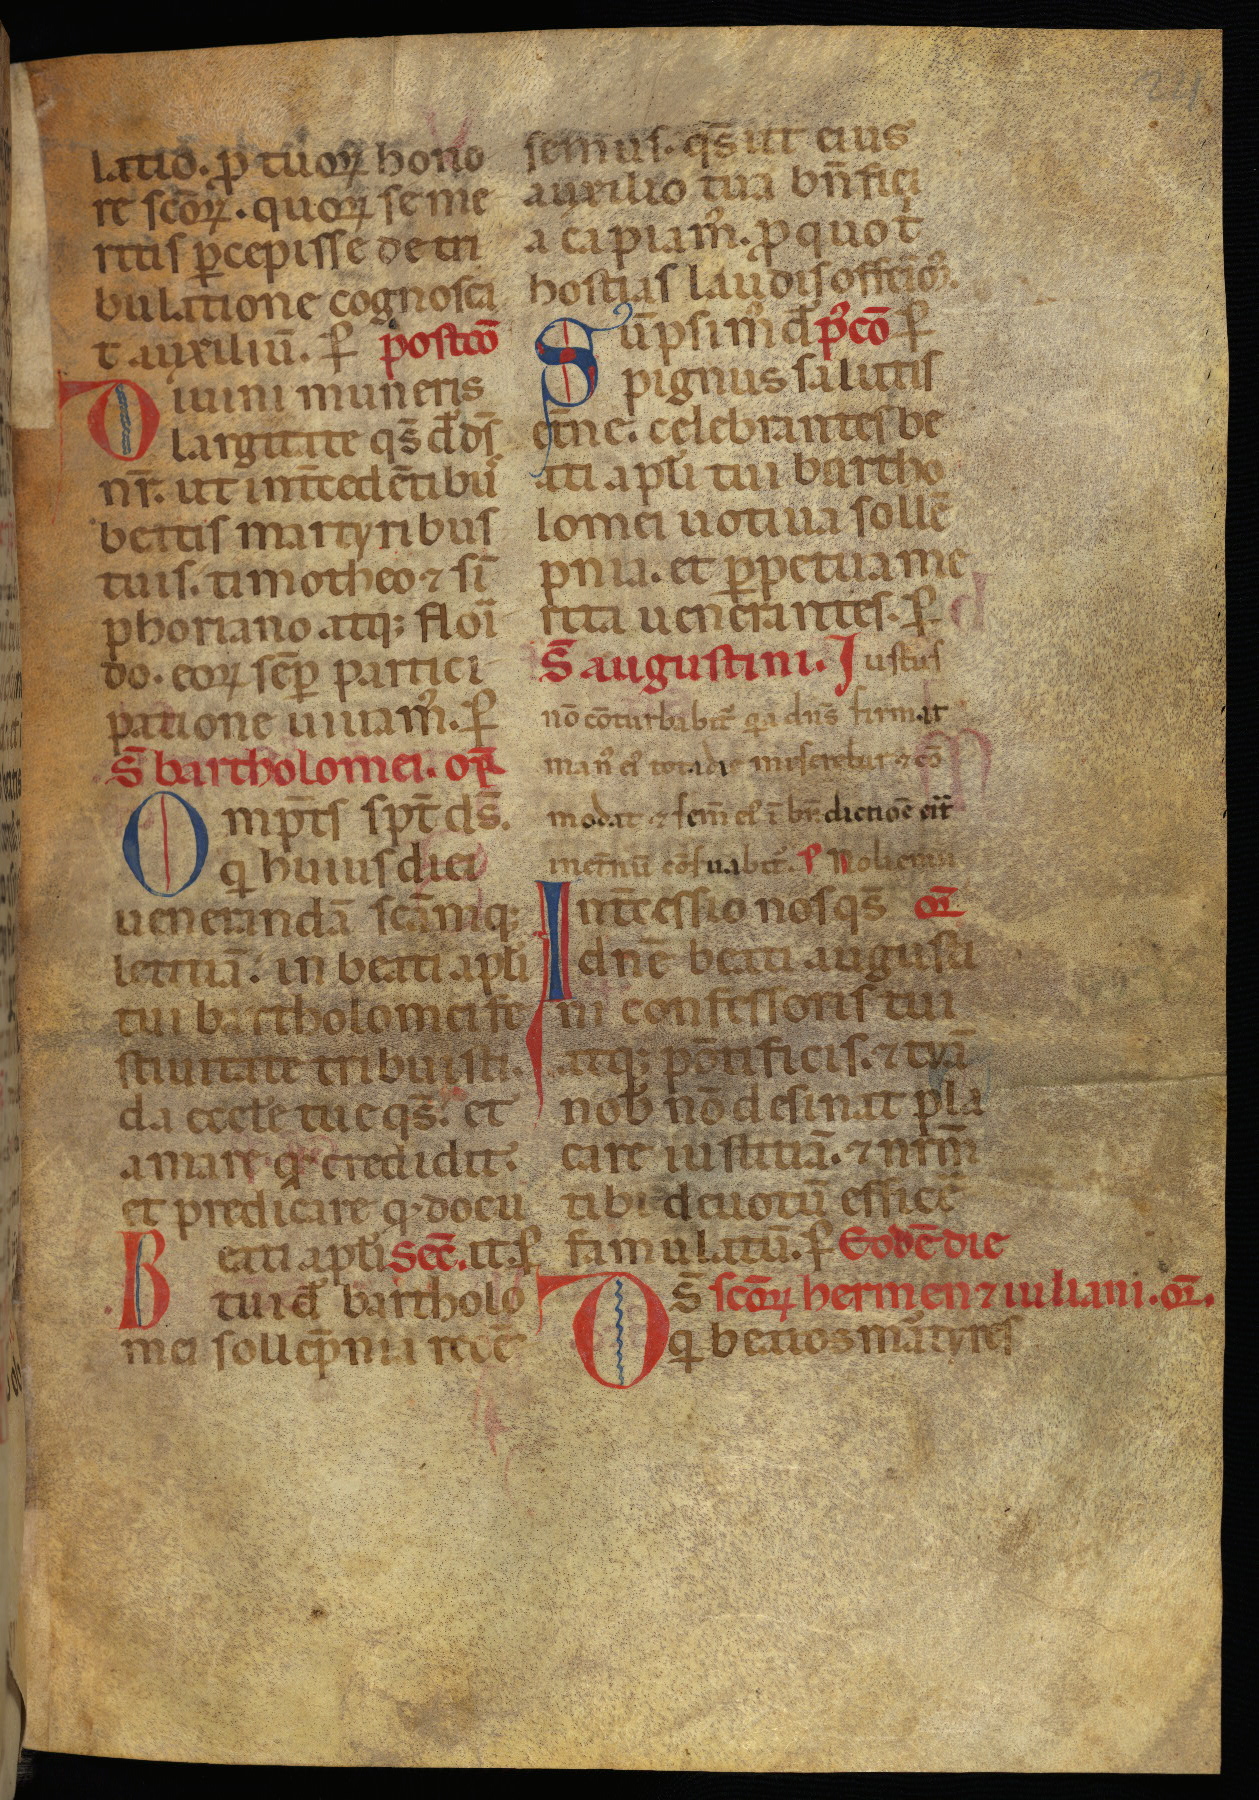 latiō. ꝓ tuoꝝ hono
re scōꝝ. quoꝝ se me
ritis ꝑcepisse de tri
bulatione cognosca
t auxiliū. ꝑ postcō
Diuini muneris
largitate qs̄ d̄ ds̄
nr̄. ut int̄cedētibu᷒
beatis martyribus
tuis. timotheo ⁊ si
phoriano atq; floi
do. eoꝝ sēꝑ partici
patione uiuam᷒. ꝑ
S̄ bartholomei. or̄
Omp̄ts spt̄ ds̄.
q̄ huius diei
uenerandā scāmq;
letitiā. in beati apl̄i
tui bartholomei fe
stiuitate tribuisti.
da eccl̄e tue qs̄. et
amare qd̄ credidit.
et predicare q. docu
Beati apl̄i Sec̄. it ꝑ
tui d̄ bartholo
mei sollēpnia recē
semus. qs̄ ut eius
auxilio tua bn̄fici
a capiam᷒. ꝓ quo t̄
hostias laudis offerim᷒.
Sūpsim᷒ d̄ p᷒cō ꝑ
pignus salutis
et̄ne. celebrantes be
ati apl̄i tui bartho
lomei uotiua sollē
pnia. et ꝑpetua me
rita uenerantes. ꝑ
S̄ augustini. Iustus
nō cōturbabit᷑ qa dn̄s firmat
man᷒ ei᷒ tota die miserebar ⁊ cō
modat ⁊ sem̄ ei᷒ ī bn̄dictiōe eīt
inet̄nū cōseruabit᷑. Noli emu
Int̄cessio nos qs̄ or̄
dn̄e beati augusti
ni confessoris tui
atq; pōtificis. ⁊ tyā
nob̄ nō desinat pla
care iustitiā. ⁊ nr̄m̄
tibi deuotū efficē
famulatū. ꝑ Eodē die
Ds̄ scōꝝ hermen ⁊ iuliani. or̄.
q̄ beatos martyres